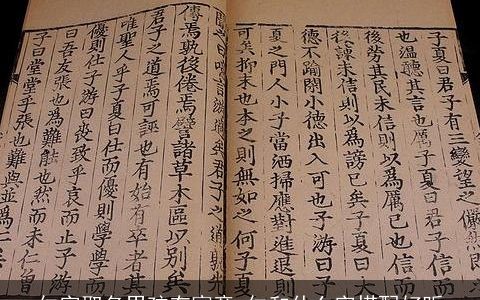 子夏曰君子有三變望之儼然
也溫聽其言也厲子夏曰君子信而
後勞其民未信則以為厲己也信而
後諫未信則以為謗己矣子夏曰大
德不踰閑小德出入可也子游曰子
夏之門人小子當洒掃應對進退
可矣抑末也本之則無如之何子夏
曰噫言游過矣君子之道
傳焉孰後倦焉譬諸草木區以別矣
君子之道焉可誣也有始有卒者
唯聖人乎子夏曰仕而優則學學而
優則仕子游曰喪致乎哀而止子游
曰吾友張也為難能也然而未仁曾
子曰堂堂乎張也難與並為仁矣